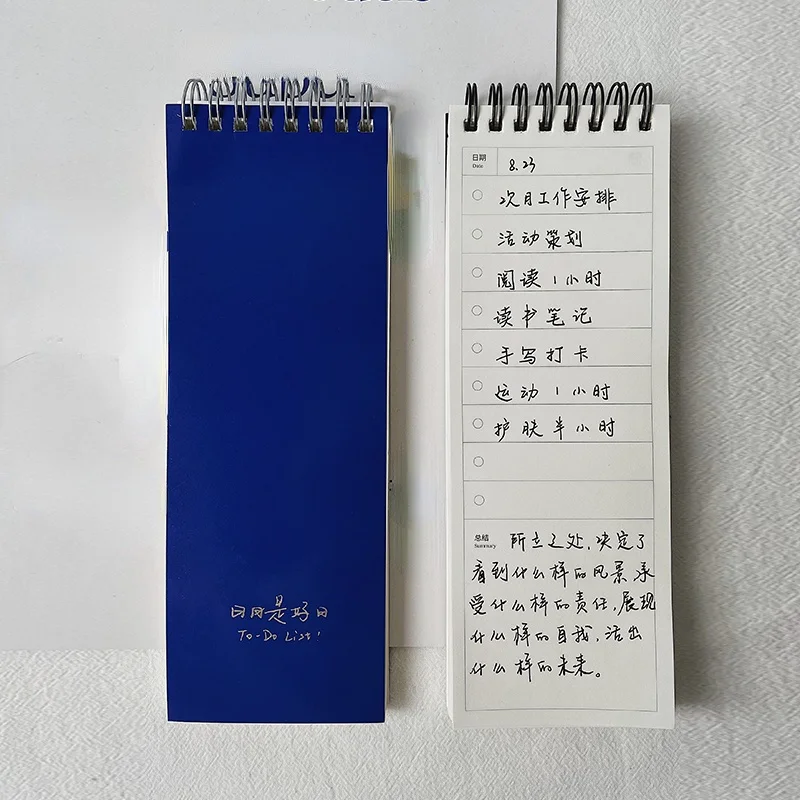 日日是好日
To-Do List!
日期
Date
8.23
次月工作安排
活动策划
阅读1小时
读书笔记
手写打卡
运动1小时
护肤半小时
总结
Summary
所立之处,决定了
看到什么样的风景,承
受什么样的责任,展现
什么样的自我,活出
什么样的未来。